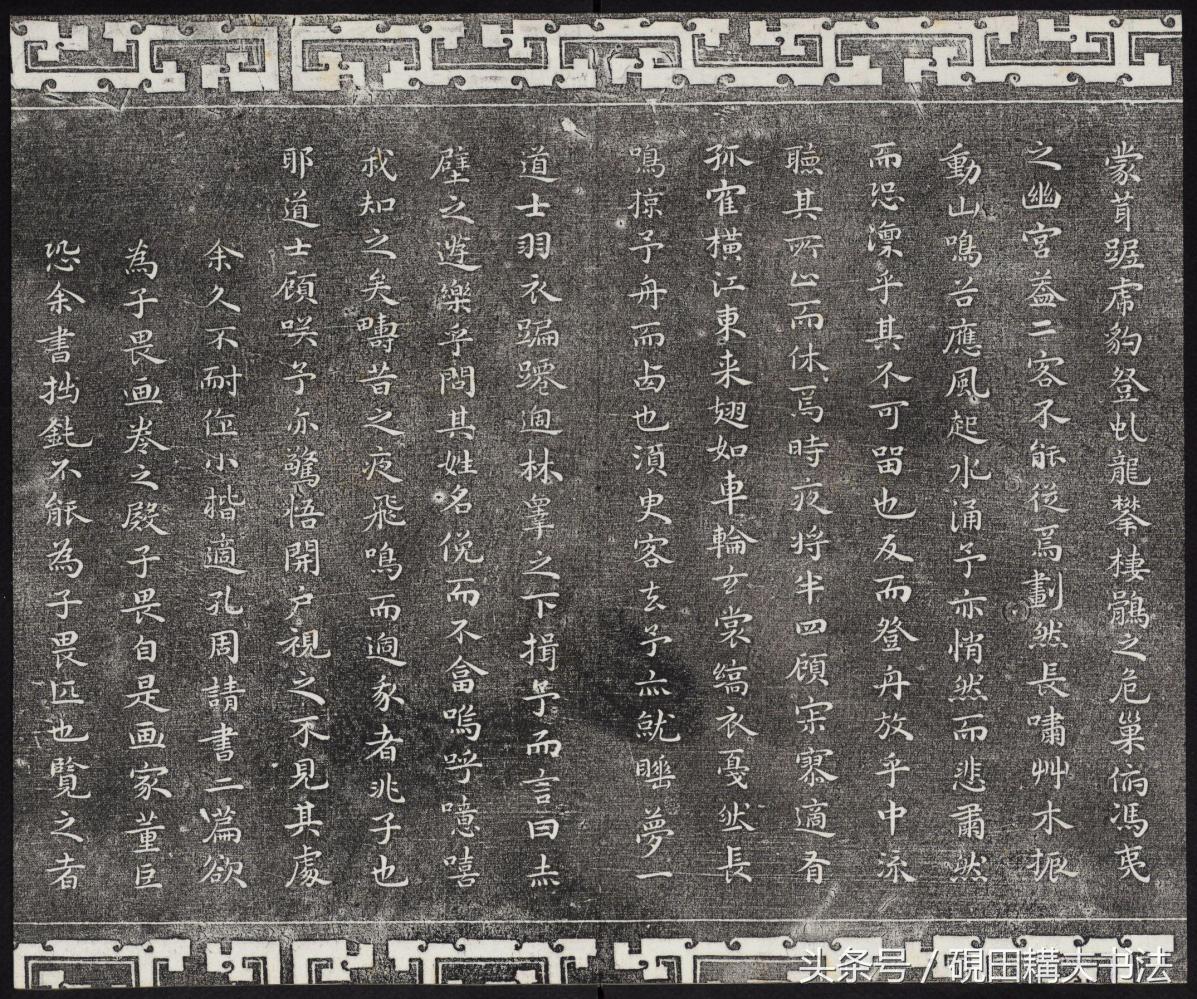 蒙茸踞虎豹登虬龍攀棲鶻之危巢俯馮夷
之幽宮葢二客不能從焉劃然長嘯艸木振
動山鳴谷應風起水涌予亦悄然而悲肅然
而恐凜乎其不可畱也反而登舟放乎中流
聽其所止而休焉時夜将半四顧宋寥適有
孤隺橫江東来翅如車輪玄裳縞衣戛然長
鳴掠予舟而西也湏臾客去予亦就睡夢一
道士羽衣蹁躚過林皋之下揖予而言曰赤
壁之遊樂乎問其姓名俛而不畣嗚呼噫嘻
我知之矣疇昔之夜飛鳴而過我者非子也
耶道士顧咲予亦驚悟開户視之不見其處
余久不耐作小楷適孔周請書二篇欲
為子畏画卷之殿子畏自是画家董巨
恐余書拙鈍不能為子畏匹也覽之者
头条号/硯田耩夫书法